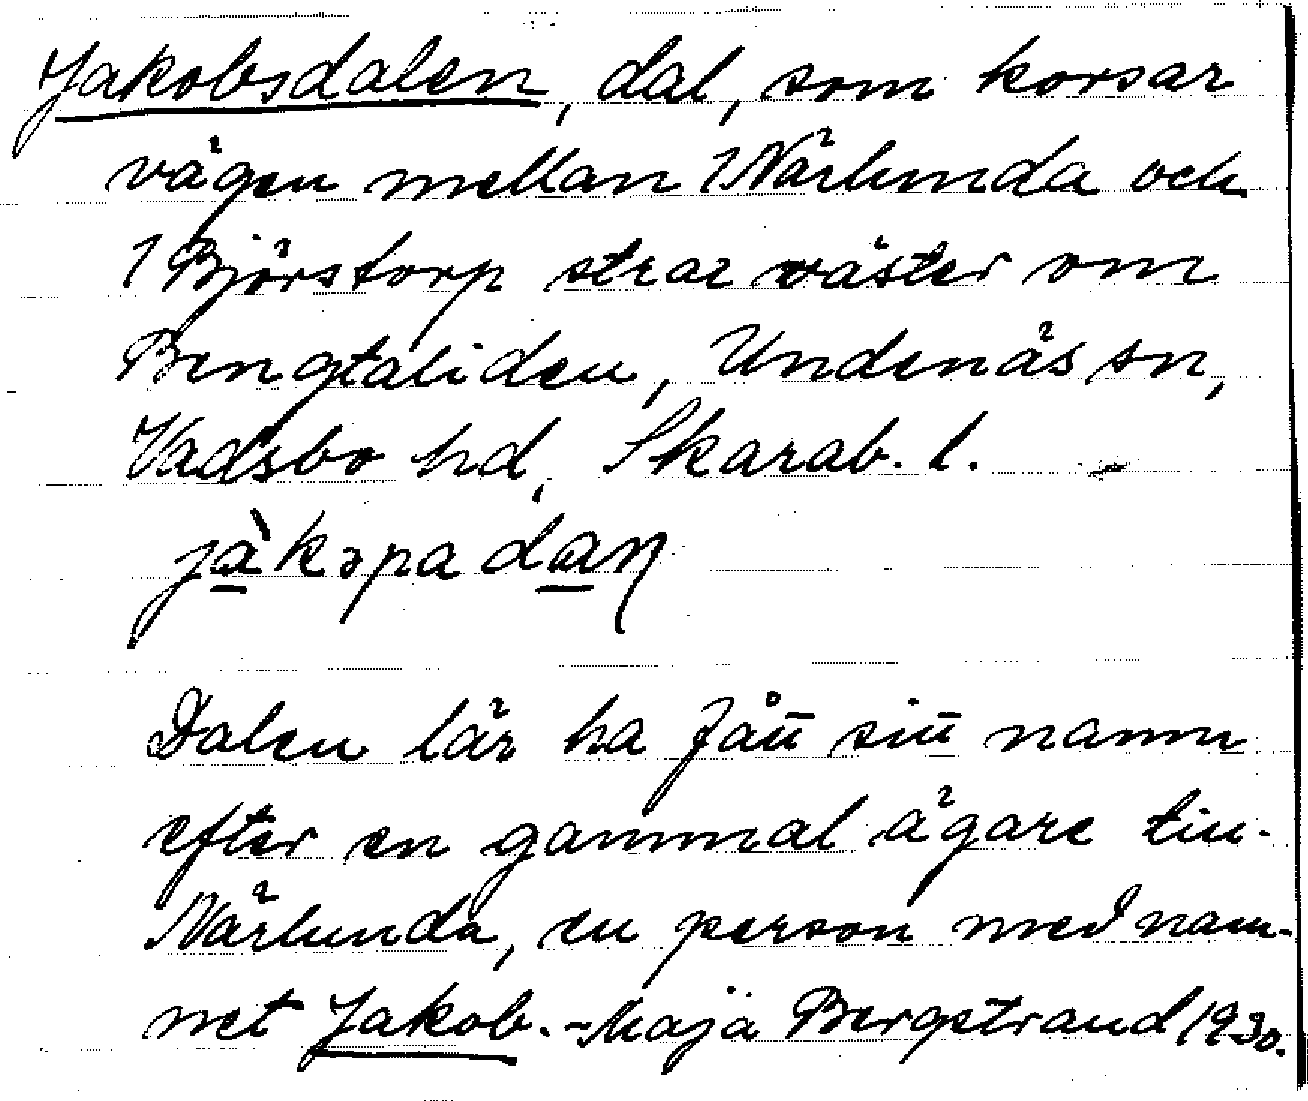 Jakobsdalen, dal, som korsar
vägen mellan 1 Närlunda och
1 Björstorp strax väster om
Bengtaliden, Undenäs sn,
Vadsbo hd, Skarab. l.
jàkɔpa dan
Dalen lär ha fått sitt namn
efter en gammal ägare till
Närlunda, en person med nam-
net Jakob. - Maja Bergstrand 1930.